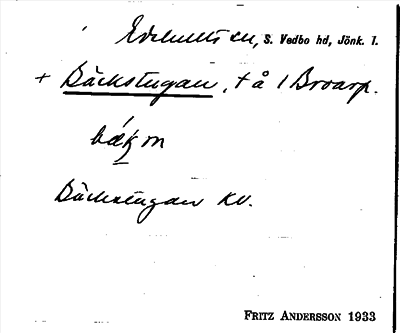 Edshults sn, S. Vedbo hd, Jönk. l.
+ Bäckstugan, t å / Broarp.
bæk m
Bäckstugan kv.
FRITZ ANDERSSON 1933